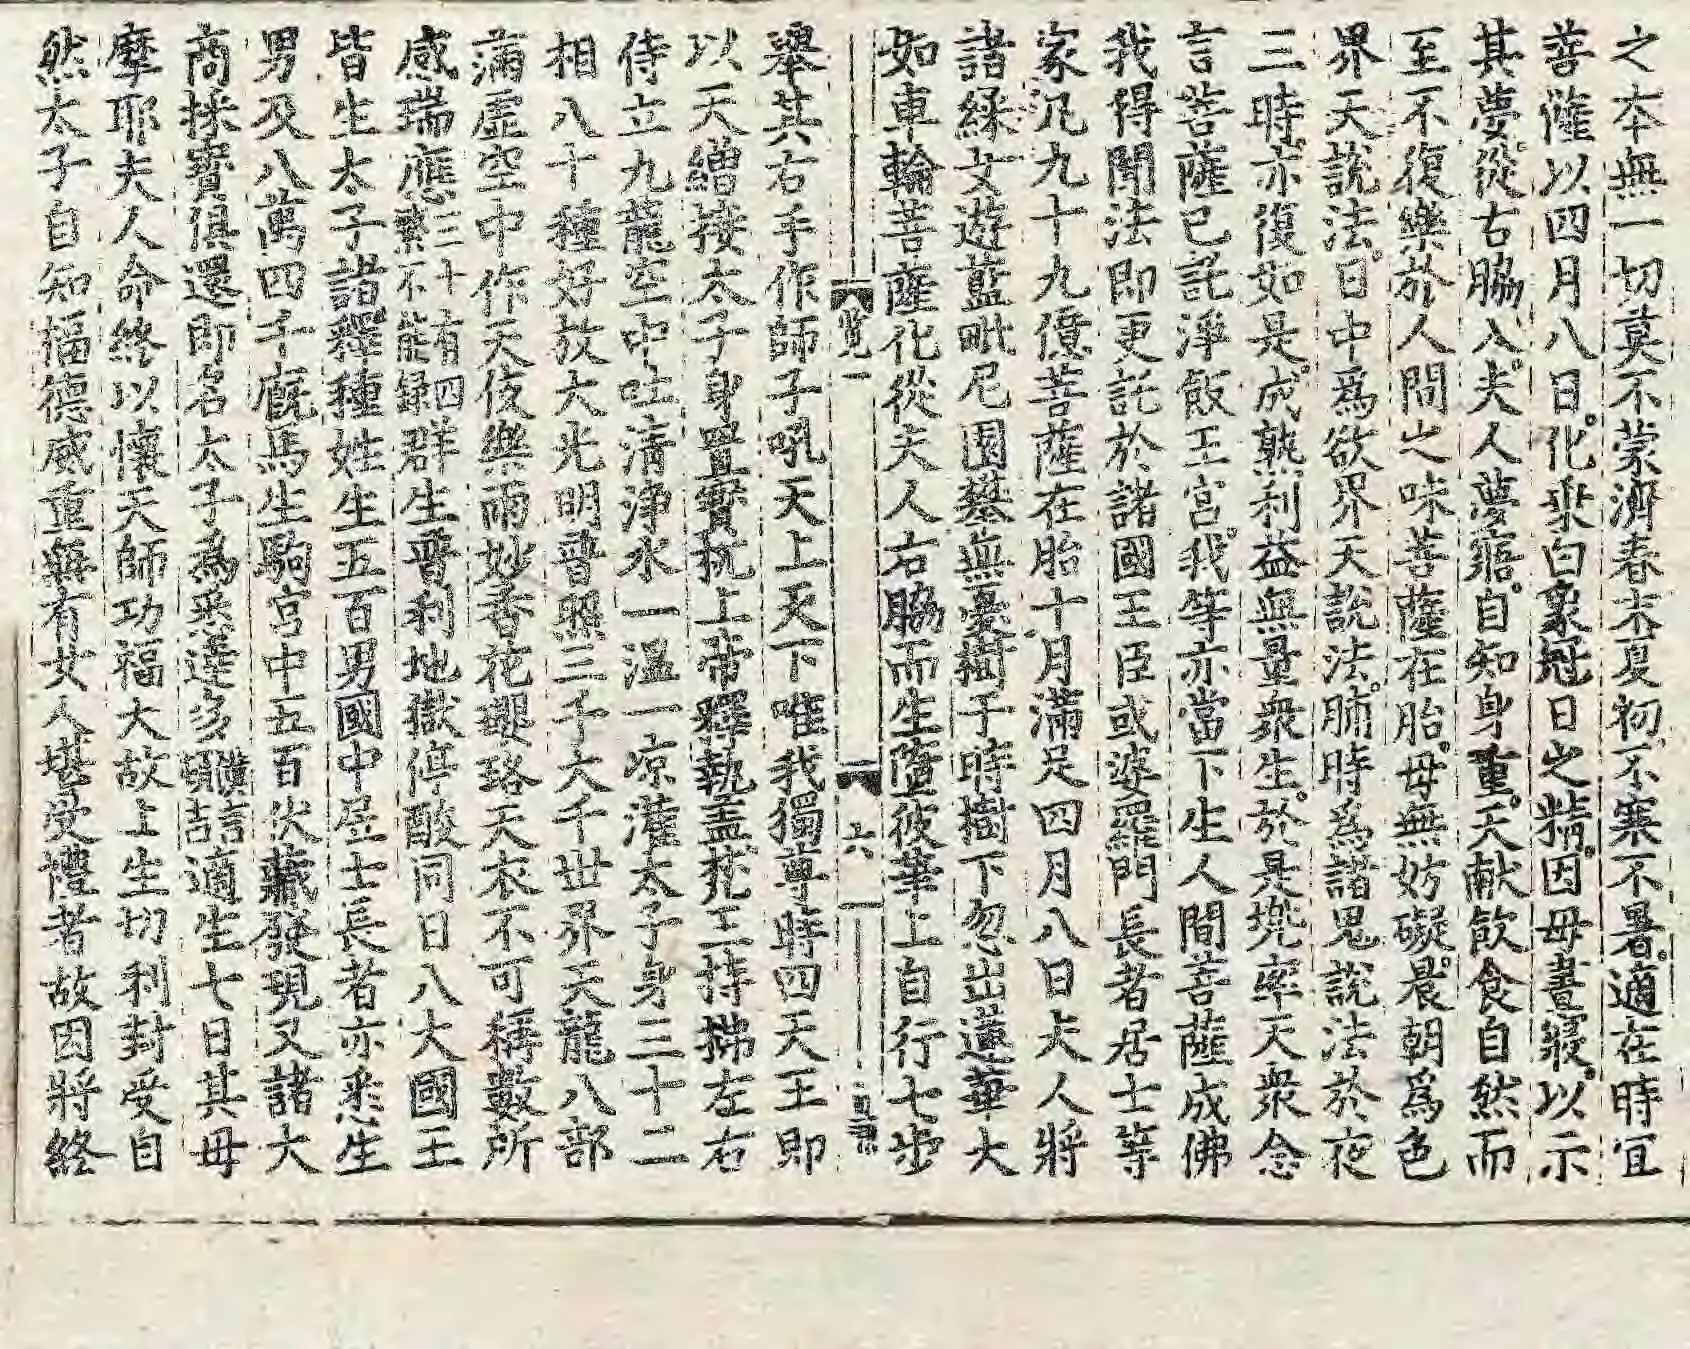 之本無一切莫不蒙濟春末夏初不寒不暑適在時宜
菩薩以四月八日化乘白象冠日之精因母晝寢以示
其夢從右脇入夫人夢寤自知身重天獻飲食自然而
至不復樂於人間之味菩薩在胎母無妨礙晨朝爲色
界天說法日中爲欲界天說法晡時爲諸鬼說法於夜
三時亦復如是成熟利益無量衆生於是兜率天衆念
言菩薩已託淨飯王宮我等亦當下生人間菩薩成佛
我得聞法即更託於諸國王臣或婆羅門長者居士等
家凡九十九億菩薩在胎十月滿足四月八日夫人將
諸綵女遊藍毗尼園攀無憂樹于時樹下忽出蓮華大
如車輪菩薩化從夫人右脇而生墮彼華上自行七步
覽一 六
舉其右手作師子吼天上天下唯我獨尊時四天王即
以天繒接太子身置寶机上帝釋執盖梵王持拂左右
侍立九龍空中吐清淨水一溫一凉灌太子身三十二
相八十種好放大光明普照三千大千世界天龍八部
滿虛空中作天伎樂雨妙香花瓔珞天衣不可稱數所
感瑞應三十有四繁不能錄群生普利地獄停酸同日八大國王
皆生太子諸釋種姓生五百男國中居士長者亦悉生
男及八萬四千廐馬生駒宮中五百伏藏發現又諸大
商採寶俱還即名太子為悉達多適生七日其母
摩耶夫人命終以懷天師功福大故上生忉利封受自
然太子自知福德威重無有女人堪受禮者故因將終